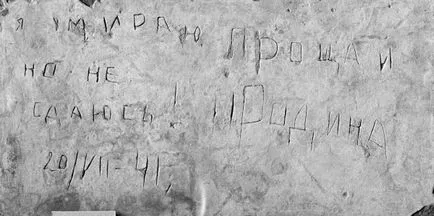 Я УМИРАЮ,
НО НЕ
СДАЮСЬ!
ПРОЩАЙ
РОДИНА
20/VII-41г.